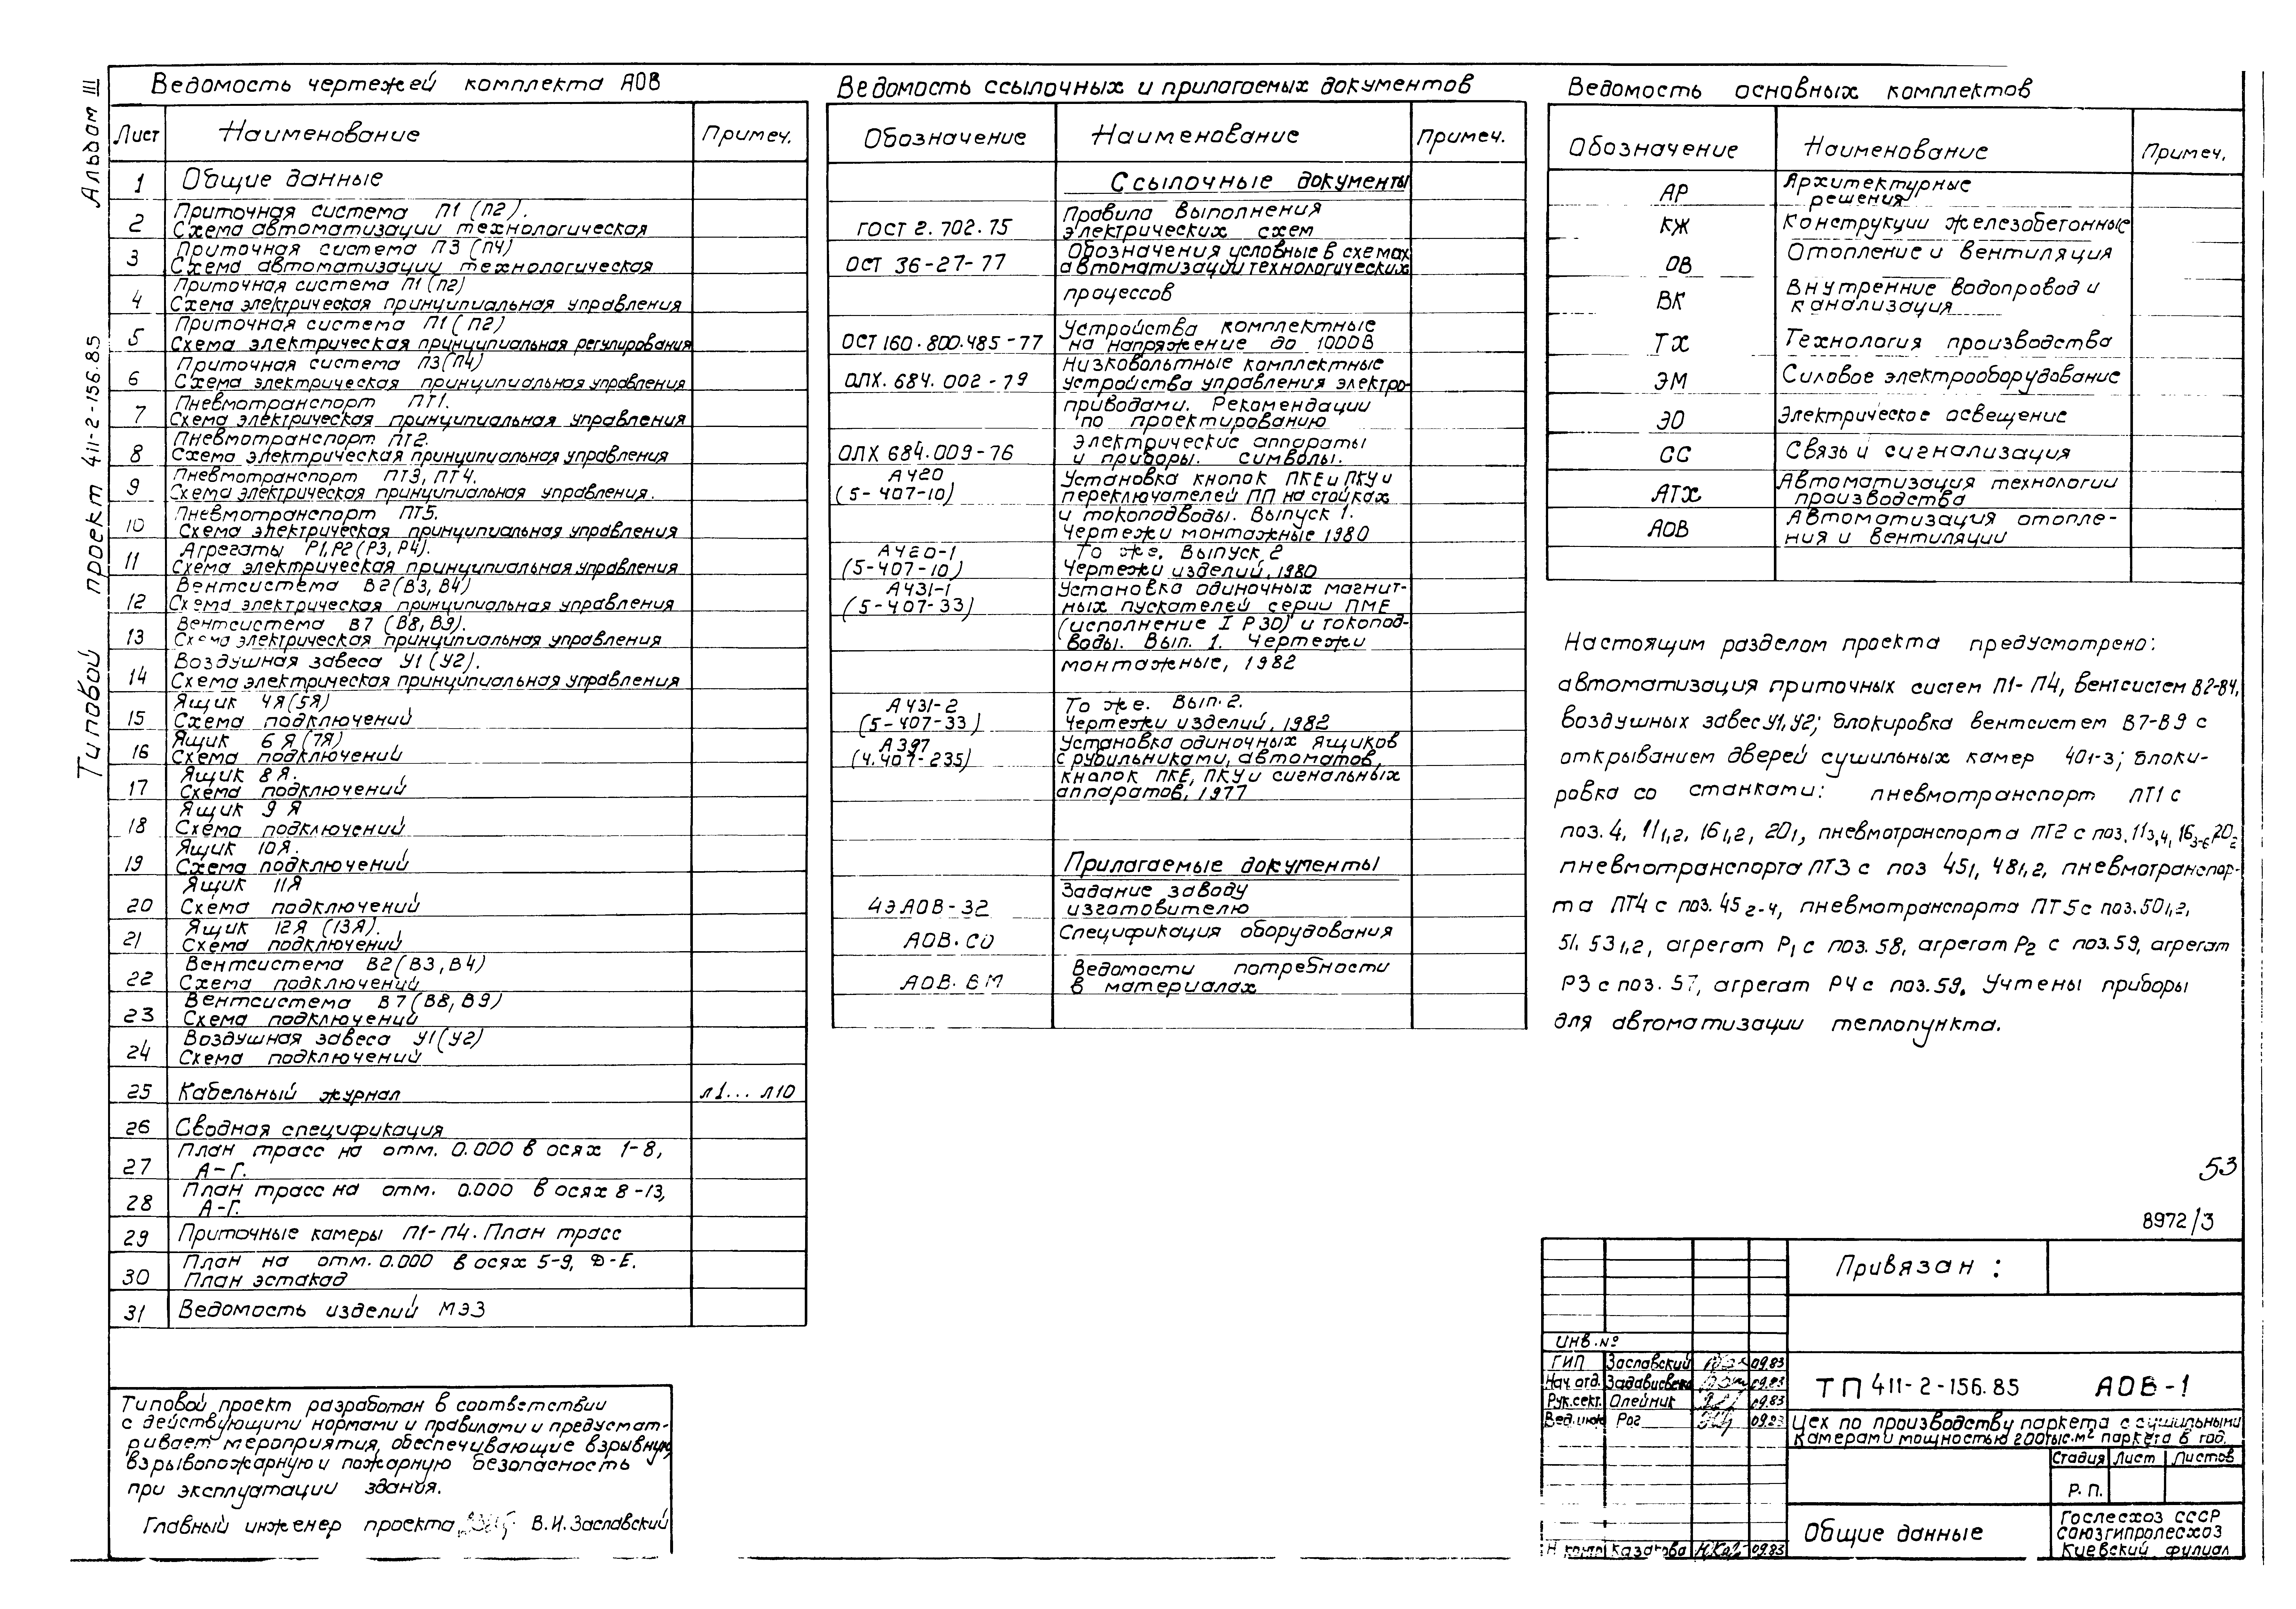 Альбом III
Типовой проект 411-2-156.85
Ведомость чертежей комплекта АОВ
Лист Наименование Примеч.
1 Общие данные
2 Приточная система П1 (П2).
Схема автоматизации технологическая
3 Приточная система П3 (П4)
Схема автоматизации технологическая
4 Приточная система П1 (П2)
Схема электрическая принципиальная управления
5 Приточная система П1 (П2)
Схема электрическая принципиальная регулирования
6 Приточная система П3 (П4)
Схема электрическая принципиальная управления
7 Пневмотранспорт ПТ1.
Схема электрическая принципиальная управления
8 Пневмотранспорт ПТ2.
Схема электрическая принципиальная управления
9 Пневмотранспорт ПТ3, ПТ4.
Схема электрическая принципиальная управления.
10 Пневмотранспорт ПТ5.
Схема электрическая принципиальная управления
11 Агрегаты Р1, Р2 (Р3, Р4).
Схема электрическая принципиальная управления
12 Вентсистема В2 (В3, В4)
Схема электрическая принципиальная управления
13 Вентсистема В7 (В8, В9).
Схема электрическая принципиальная управления
14 Воздушная завеса У1 (У2).
Схема электрическая принципиальная управления
15 Ящик 4Я (5Я)
Схема подключений
16 Ящик 6Я (7Я)
Схема подключений
17 Ящик 8Я.
Схема подключений
18 Ящик 9Я
Схема подключений
19 Ящик 10Я.
Схема подключений
20 Ящик 11Я
Схема подключений
21 Ящик 12Я (13Я).
Схема подключений
22 Вентсистема В2 (В3, В4)
Схема подключений
23 Вентсистема В7 (В8, В9)
Схема подключений
24 Воздушная завеса У1 (У2)
Схема подключений
25 Кабельный журнал л1... л10
26 Сводная спецификация
27 План трасс на отм. 0.000 в осях 1-8,
А-Г.
28 План трасс на отм. 0.000 в осях 8-13,
А-Г.
29 Приточные камеры П1-П4. План трасс
30 План на отм. 0.000 в осях 5-9, Д-Е.
План эстакад
31 Ведомость изделий МЭЗ
Типовой проект разработан в соответствии
с действующими нормами и правилами и предусмат-
ривает мероприятия, обеспечивающие взрывную,
взрывопожарную и пожарную безопасность
при эксплуатации здания.
Главный инженер проекта В.И. Заславский
Ведомость ссылочных и прилагаемых документов
Обозначение Наименование Примеч.
Ссылочные документы
ГОСТ 2.702.75 Правила выполнения
электрических схем
ОСТ 36-27-77 Обозначения условные в схемах
автоматизации технологических
процессов
ОСТ 160.800.485-77 Устройства комплектные
на напряжение до 1000В
ОЛХ.684.002-79 Низковольтные комплектные
устройства управления электро-
приводами. Рекомендации
по проектированию
ОЛХ 684.009-76 Электрические аппараты
и приборы. Символы.
А420
(5-407-10) Установка кнопок ПКЕ и ПКУ и
переключателей ПП на стойках
и токоподводы. Выпуск 1.
Чертежи монтажные 1980
А420-1
(5-407-10) То же. Выпуск 2
Чертежи изделий, 1980
А431-1
(5-407-33) Установка одиночных магнит-
ных пускателей серии ПМЕ
(исполнение I Р30) и токопод-
воды. Вып. 1. Чертежи
монтажные, 1982
А431-2
(5-407-33) То же. Вып. 2.
Чертежи изделий, 1982
А397
(4.407-235) Установка одиночных ящиков
с рубильниками, автоматов,
кнопок ПКЕ, ПКУ и сигнальных
аппаратов, 1977
Прилагаемые документы
4ЭАОВ-32 Задание заводу
изготовителю
АОВ.СО Спецификация оборудования
АОВ.ВМ Ведомости потребности
в материалах
Ведомость основных комплектов
Обозначение Наименование Примеч.
АР Архитектурные
решения
КЖ Конструкции железобетонные
ОВ Отопление и вентиляция
ВК Внутренние водопровод и
канализация
ТХ Технология производства
ЭМ Силовое электрооборудование
ЭО Электрическое освещение
СС Связь и сигнализация
АТХ Автоматизация технологии
производства
АОВ Автоматизация отопле-
ния и вентиляции
Настоящим разделом проекта предусмотрено:
автоматизация приточных систем П1-П4, вентсистем В2-В4,
воздушных завес У1, У2; блокировка вентсистем В7-В9 с
открыванием дверей сушильных камер 401-3; блоки-
ровка со станками: пневмотранспорт ПТ1 с
поз. 4, 111,2, 161,2, 201, пневмотранспорта ПТ2 с поз. 113,4, 163-6 202
пневмотранспорта ПТ3 с поз 451, 481,2, пневмотранспор-
та ПТ4 с поз. 452-4, пневмотранспорта ПТ5 с поз. 501,2,
51, 531,2, агрегат Р1 с поз. 58, агрегат Р2 с поз. 59, агрегат
Р3 с поз. 57, агрегат Р4 с поз. 59. Учтены приборы
для автоматизации теплопункта.
53
8972/3
Привязан:
Инв. №
ГИП Заславский 09.83
Нач. отд. 09.83
Рук. сект. Олейник 09.83
Вед. инж Рог 09.83
Н. контр Казакова 09.83
ТП 411-2-156.85 АОВ-1
Цех по производству паркета с сушильными
камерами мощностью 200тыс.м² паркета в год.
Стадия Лист Листов
Р.П.
Общие данные
Гослесхоз СССР
Союзгипролесхоз
Киевский филиал